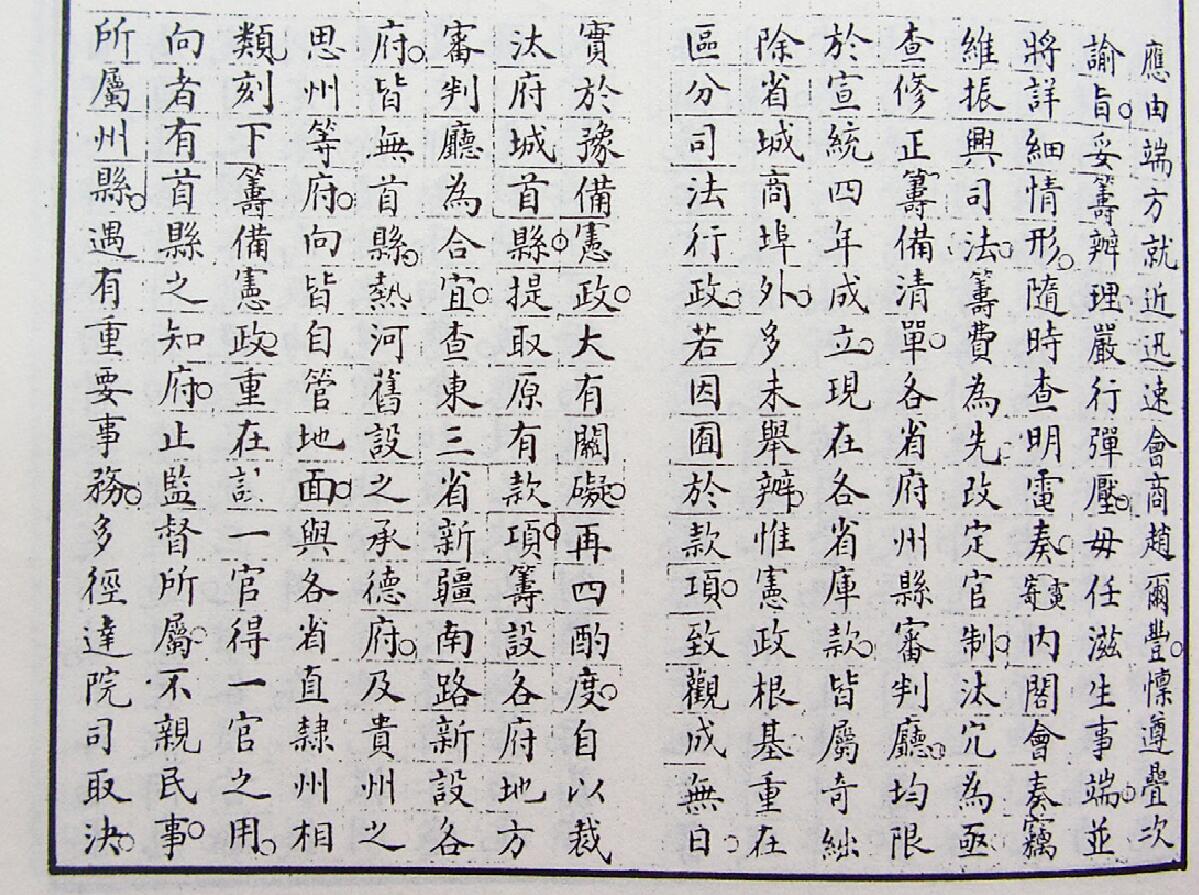 應由端方就近迅速會商趙爾豐。懍遵疊次
諭旨。妥籌辦理。嚴行彈壓。毋任滋生事端。並
將詳細情形。隨時查明電奏。電寄內閣會奏竊
維振興司法。籌費為先。改定官制。汰冗為亟
查修正籌備清單。各省府州縣審判廳。均限
於宣統四年成立。現在各省庫款。皆屬奇絀
除省城商埠外。多未舉辦。惟憲政根基重在
區分司法行政。若因囿於款項。致觀成無日。
實於豫備憲政。大有關礙。再四酌度。自以裁
汰府城首縣。提取原有款項。籌設各府地方
審判廳為合宜。查東三省新疆南路新設各
府。皆無首縣。熱河舊設之承德府。及貴州之
思州等府。向皆自管地面。與各省直隸州相
類。刻下籌備憲政。重在一官得一官之用。
向者有首縣之知府。止監督所屬。不親民事。
所屬州縣。遇有重要事務。多徑達院司取決。